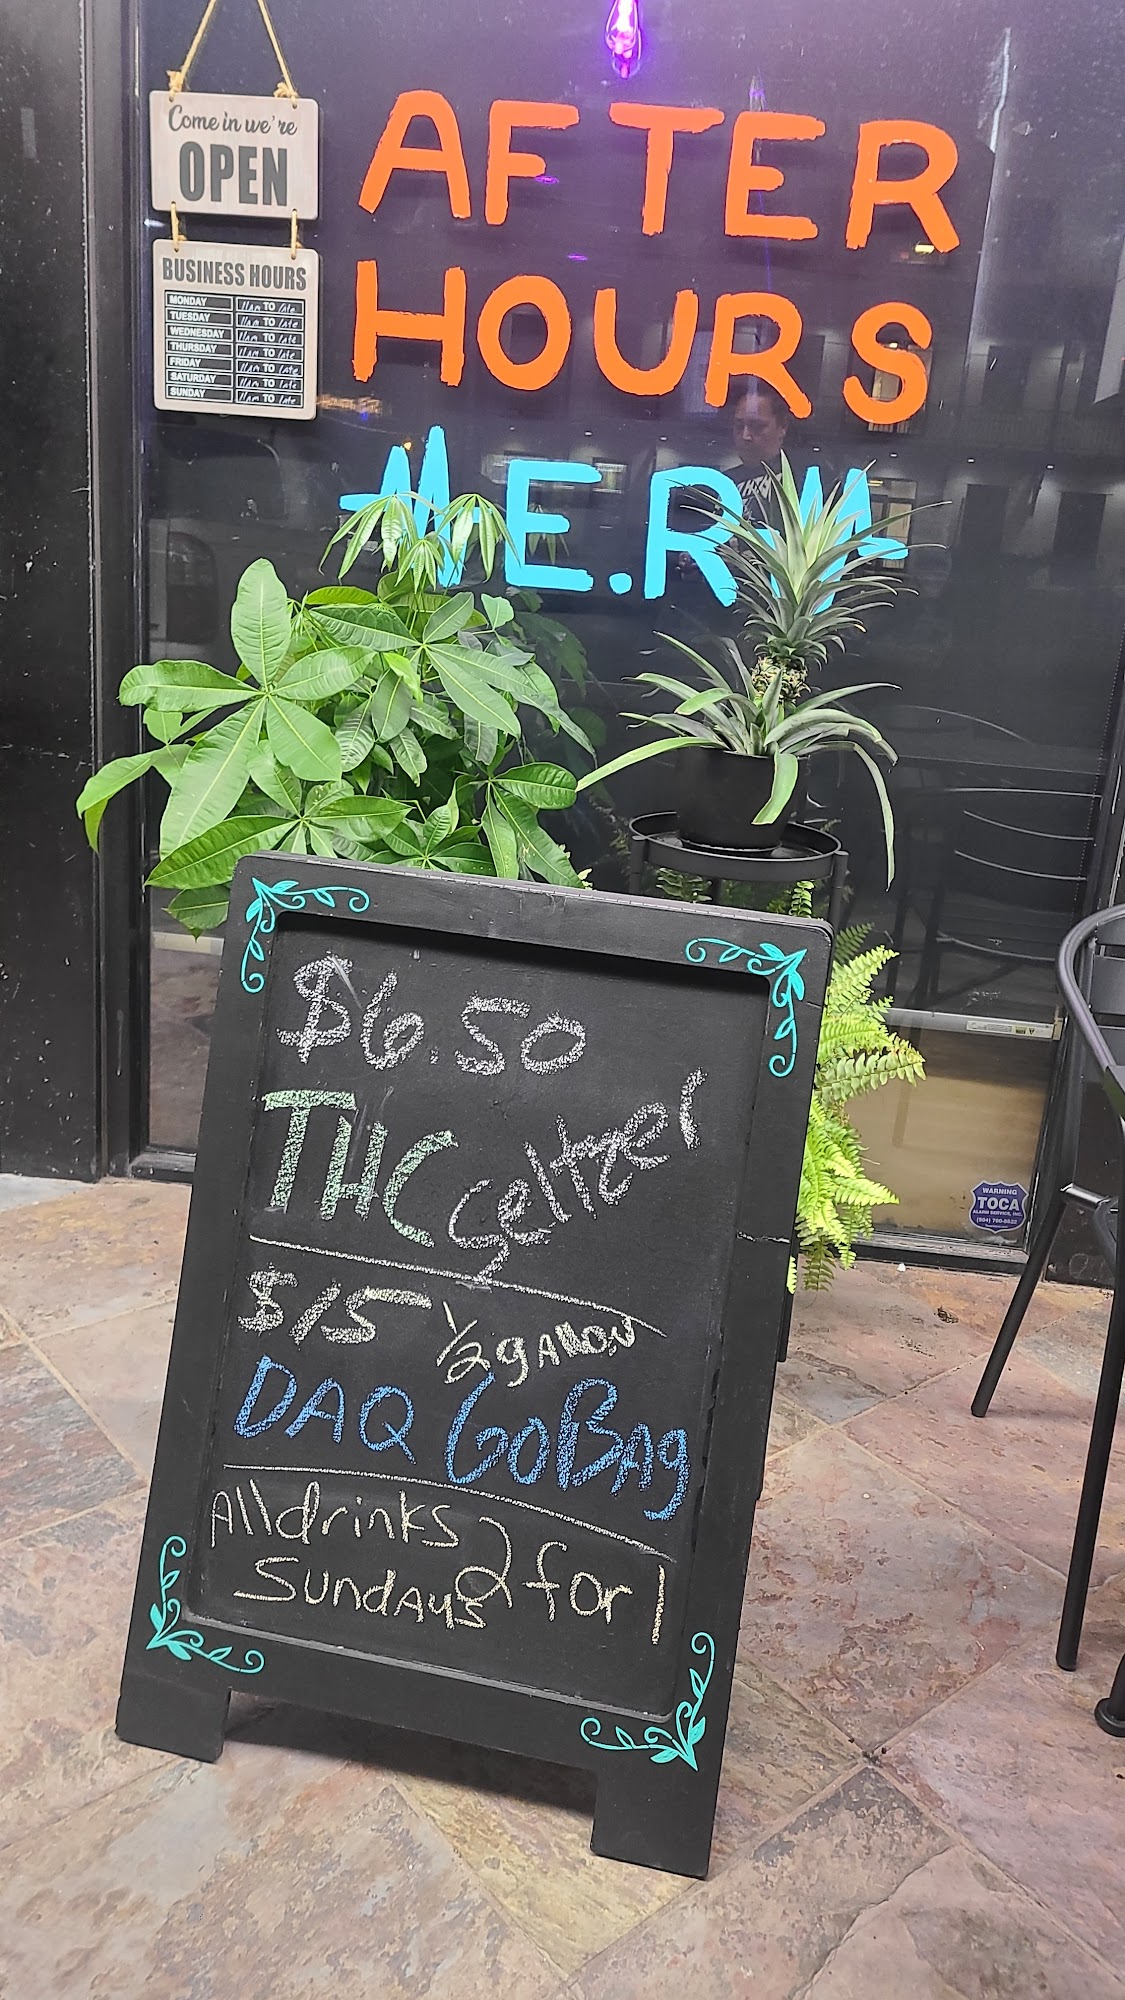 Come in we're
OPEN
BUSINESS HOURS
MONDAY 11am TO late
TUESDAY 11am TO late
WEDNESDAY 11am TO late
THURSDAY 11am TO late
FRIDAY 11am TO late
SATURDAY 11am TO late
SUNDAY 11am TO late
AFTER
HOURS
E.R
$6.50
THC Seltzer
$15 1/2 gallon
DAQ GoBag
All drinks
Sundays 2 for 1
WARNING
TOCA
ALARM SERVICE, INC.